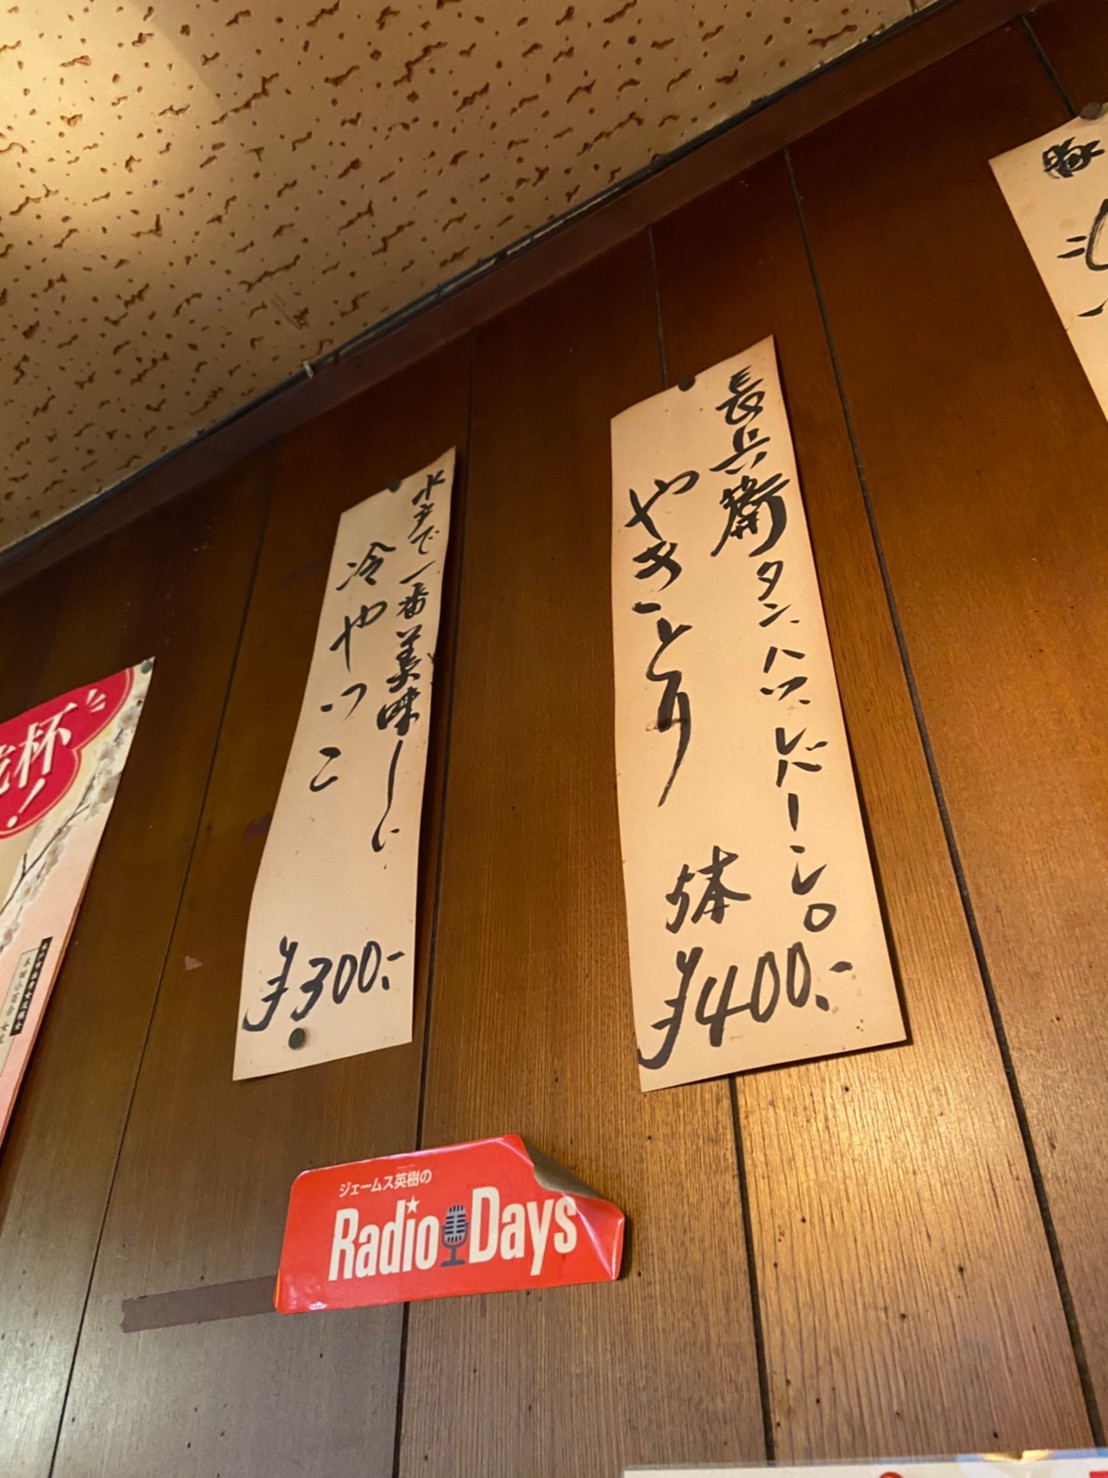 豚
長兵衛タン、ハツ、レバー、シロ。
やきとり
5本
¥400.-
水戸で一番美味しい
冷やっこ
¥300.-
杯!
ジェームス英樹の
Radio Days